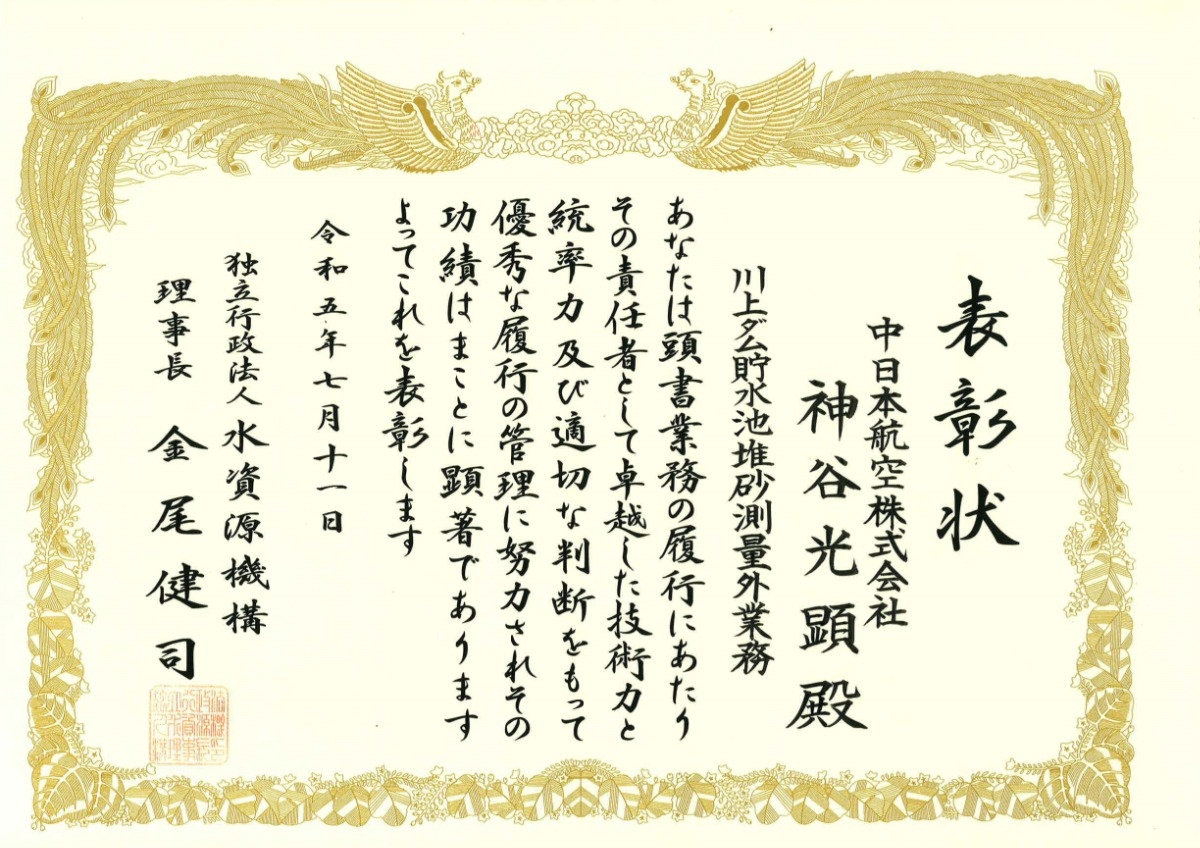 表彰状
中日本航空株式会社
神谷光顕殿
川上ダム貯水池堆砂測量外業務
あなたは頭書業務の履行にあたり
その責任者として卓越した技術力と
統率力及び適切な判断をもって
優秀な履行の管理に努力されその
功績はまことに顕著であります
よってこれを表彰します
令和五年七月十一日
独立行政法人水資源機構
理事長 金尾健司